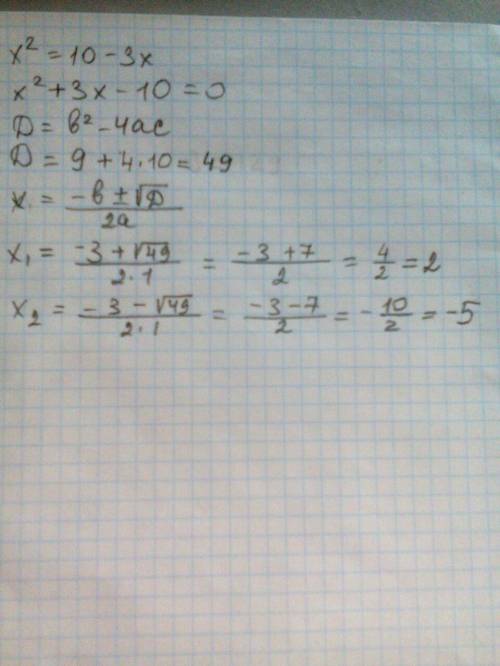 x² = 10 - 3x
x² + 3x - 10 = 0
D = b² - 4ac
D = 9 + 4·10 = 49
x = (-b ± √D)/(2a)
x₁ = (-3 + √49)/(2·1) = (-3 + 7)/2 = 4/2 = 2
x₂ = (-3 - √49)/(2·1) = (-3 - 7)/2 = -10/2 = -5